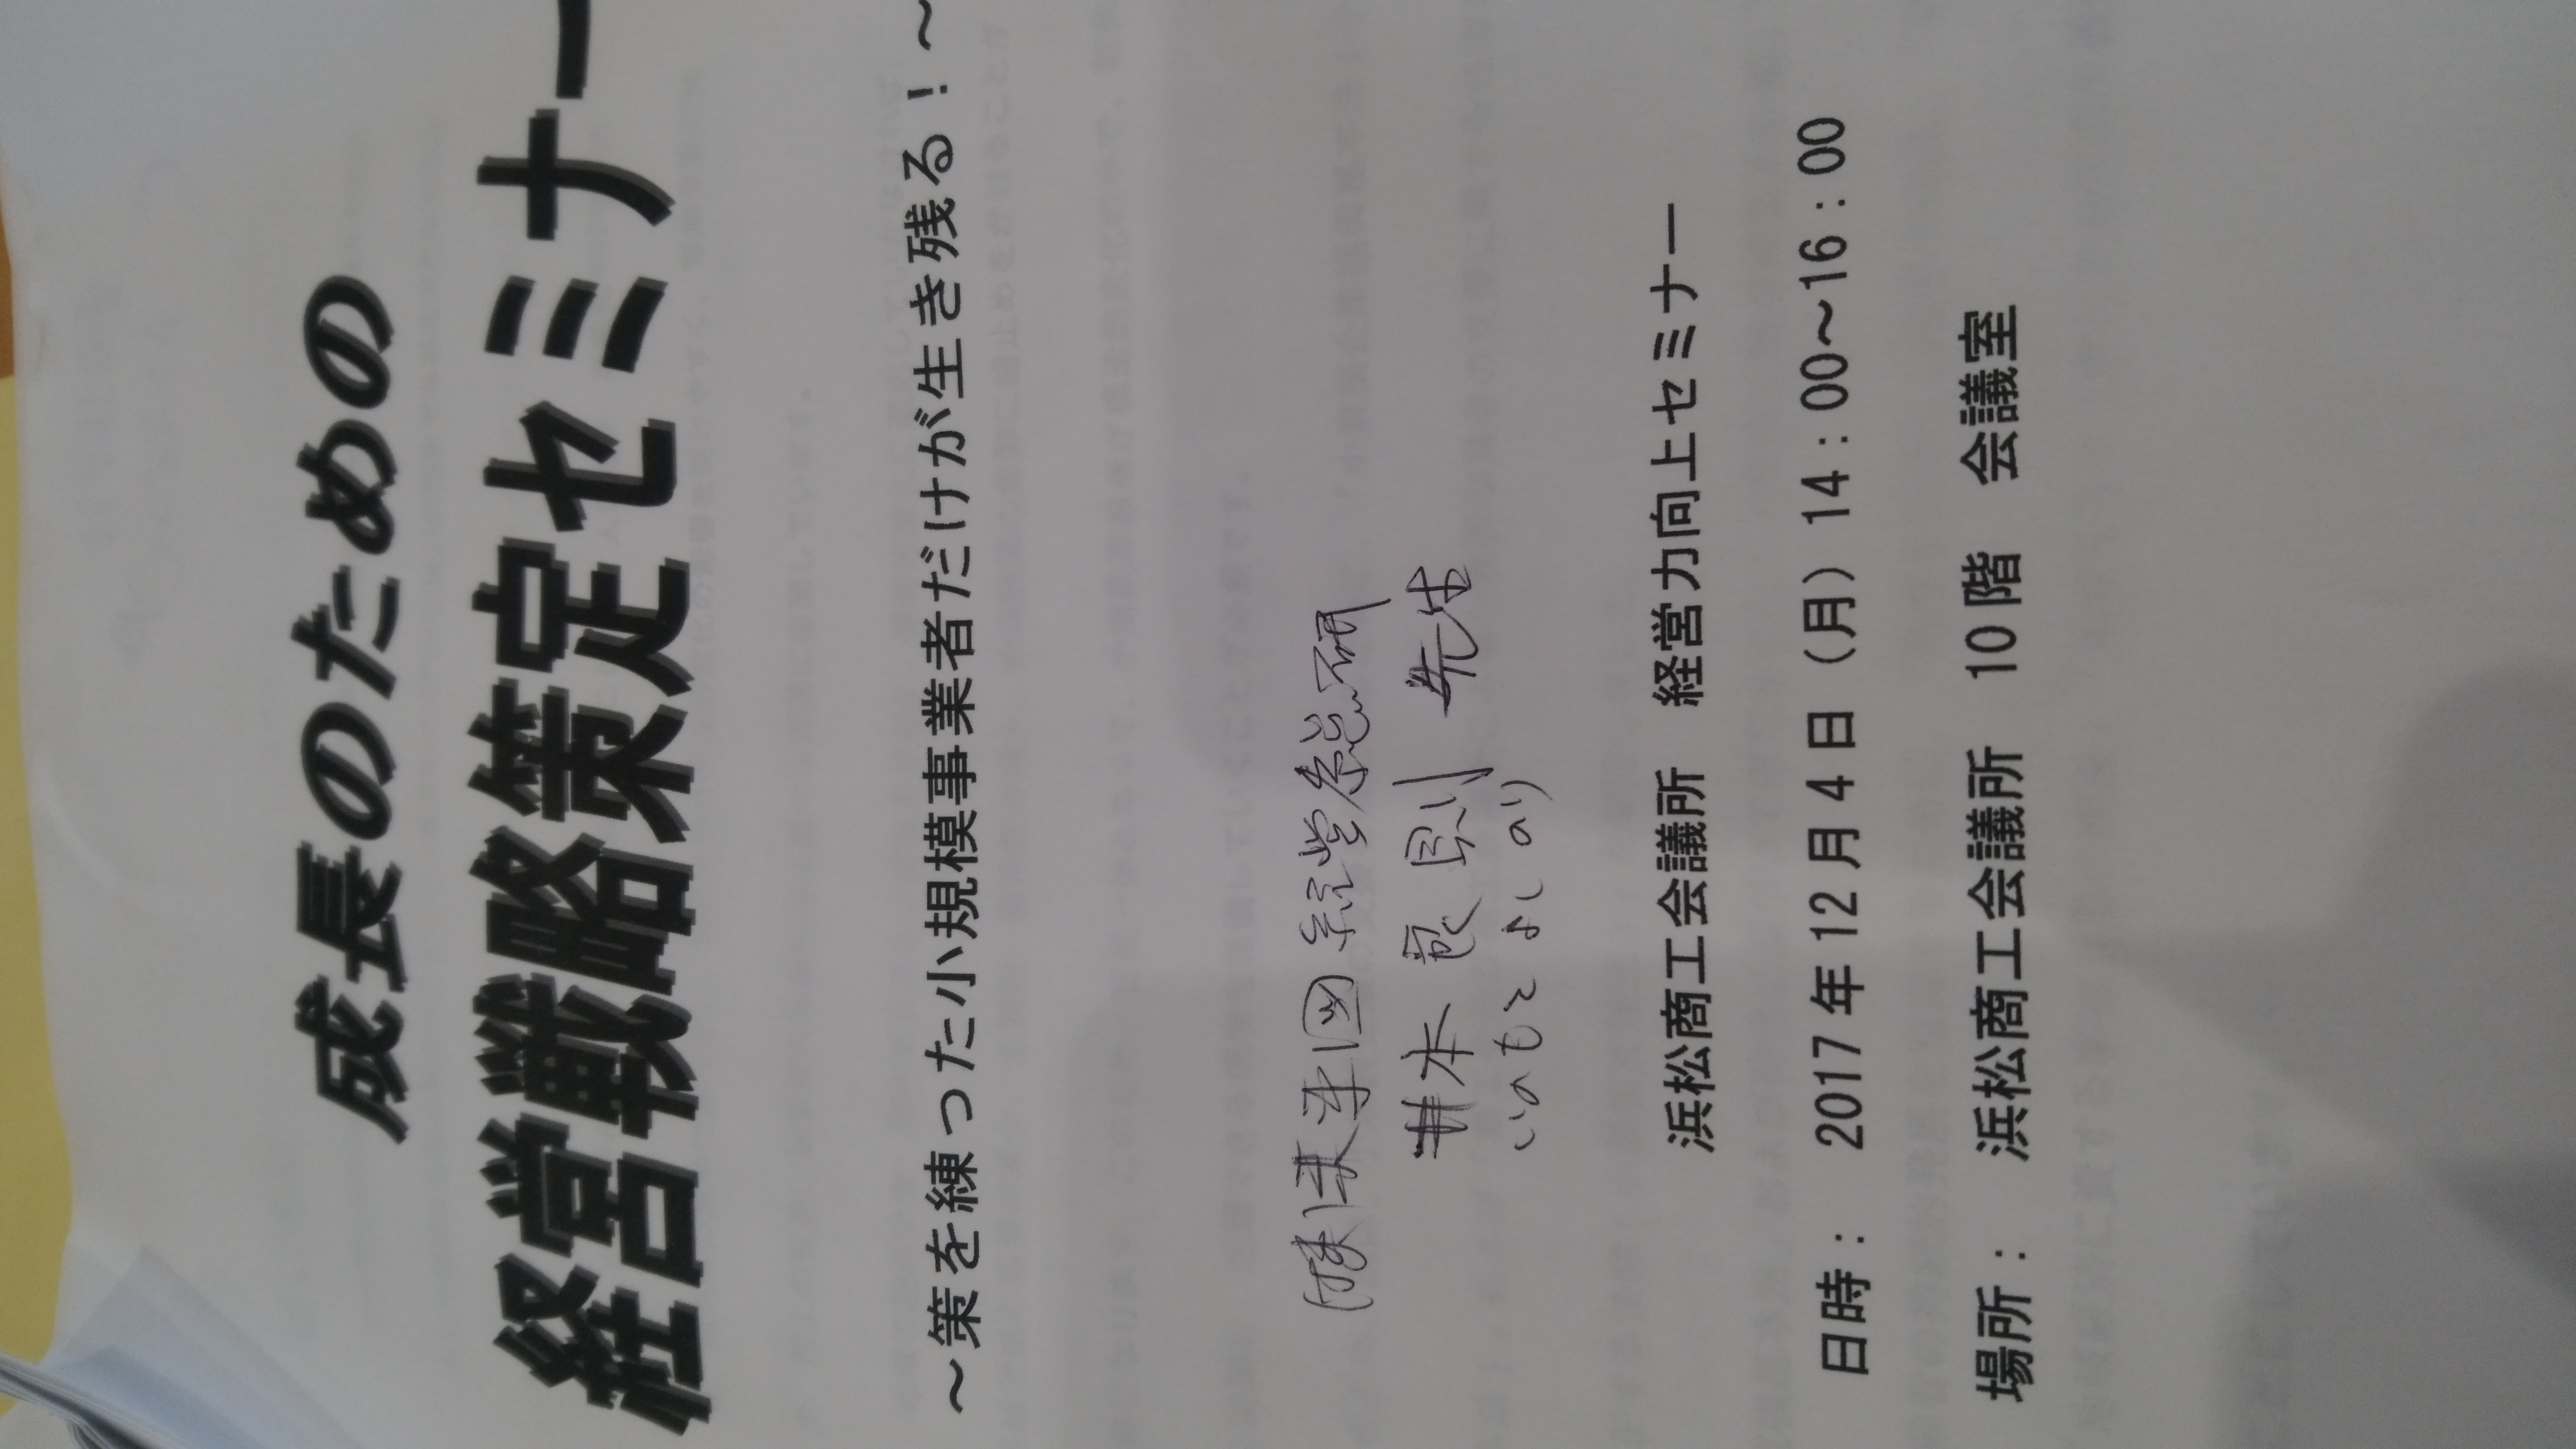 成長のための
経営戦略策定セミナー
～策を練った小規模事業者だけが生き残る！～
(株)東海圏経営総研
井本良則 先生
いのもと よしのり
浜松商工会議所 経営力向上セミナー
日時： 2017年12月4日（月）14：00～16：00
場所： 浜松商工会議所 10階 会議室